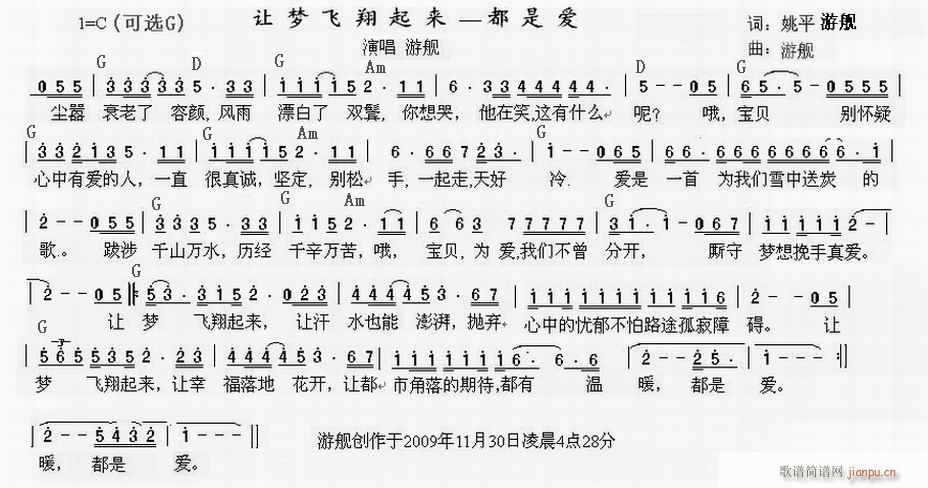 1=C (可选G) 让梦飞翔起来—都是爱 词: 姚平 游舰
演唱 游舰 曲: 游舰
G D G Am D G
0 5 5 | 3 3 3 3 5 · 3 3 | 1 1 1 1 5 2 · 1 1 | 6 · 3 3 4 4 4 4 4 · | 5 - - 0 5 | 6 5 · 5 - 0 5 5 5 |
尘嚣 衰老了 容颜, 风雨 漂白了 双鬓, 你想哭, 他在笑,这有什么 呢? 哦, 宝贝 别怀疑
G G Am G
| 3 3 2 1 3 5 · 1 1 | 5 5 1 5 2 · 1 1 | 6 · 6 6 7 2 3 · | 1 - - 0 6 5 | 6 6 6 6 6 6 6 6 6 · 1 |
心中有爱的人, 一直 很真诚, 坚定, 别松 手, 一起走,天好 冷. 爱是 一首 为我们雪中送炭 的
G G Am G
2 - - 0 5 5 | 3 3 3 3 5 · 3 3 | 1 1 5 2 · 1 1 | 6 6 3 7 7 7 7 7 | 3 1 · 1 - 0 1 | 1 1 1 1 1 2 - |
歌.。 跋涉 千山万水, 历经 千辛万苦, 哦, 宝贝, 为 爱,我们不曾 分开, 厮守 梦想挽手真爱。
G
| 2 - - 0 5 ‖: 5 3 · 3 1 5 2 · 0 2 3 | 4 4 4 4 5 3 · 6 7 | 1 1 1 1 1 1 1 1 1 1 1 6 | 2 - - 0 5 |
让 梦 飞翔起来, 让汗 水也能 澎湃, 抛弃 心中的忧郁不怕路途孤寂障 碍。 让
G
5 6 5 5 3 5 2 · 2 3 | 4 4 4 4 5 3 · 6 7 | 1 1 1 1 1 1 1 6 · 6 · 6 | 2 - 2 5 · | 1 - - - :‖
梦 飞翔起来, 让幸 福落地 花开, 让都 市角落的期待,都有 温 暖, 都是 爱。
| 2 - - 5 4 3 2 | 1 - - - ‖ 游舰创作于2009年11月30日凌晨4点28分
暖, 都是 爱。
歌谱简谱网 jianpu.cn